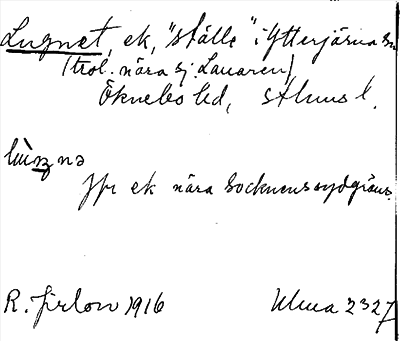 Lugnet, ek, "ställe" i Ytterjärna sn
(trol. nära sj. Lanaren)
Öknebo hd, Sthlms l.
nära socknens sydgräns.
R. Jirlow 1916 Ulma 2327